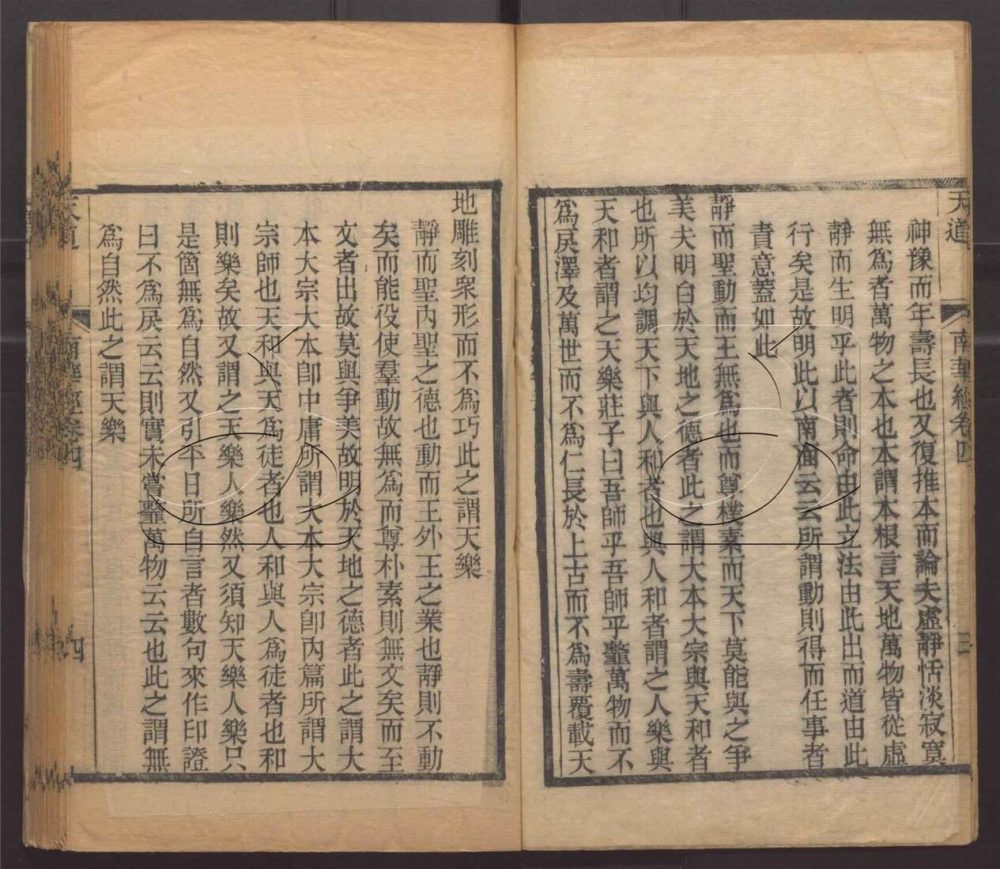 天道
南華經卷四
三
神豫而年壽長也又復推本而論夫虛靜恬淡寂寞
無為者萬物之本也本謂本根言天地萬物皆從虛
靜而生明乎此者則命由此立法由此出而道由此
行矣是故明此以南面云云所謂動則得而任事者
責意蓋如此
靜而聖動而王無為也而尊樸素而天下莫能與之爭
美夫明白於天地之德者此之謂大本大宗與天和者
也所以均調天下與人和者也與人和者謂之人樂與
天和者謂之天樂莊子曰吾師乎吾師乎䪠萬物而不
為戾澤及萬世而不為仁長於上古而不為壽覆載天
地雕刻衆形而不為巧此之謂天樂
靜而聖內聖之德也動而王外王之業也靜則不動
矣而能役使羣動故無為而尊朴素則無文矣而至
文者出故莫與爭美故明於天地之德者此之謂大
本大宗大本卽中庸所謂大本大宗卽內篇所謂大
宗師也天和與天為徒者也人和與人為徒者也和
則樂矣故又謂之天樂人樂然又須知天樂人樂只
是箇無為自然又引平日所自言者數句來作印證
曰不為戾云云則實未嘗䪠萬物云云也此之謂無
為自然此之謂天樂
天道
南華經卷四
四